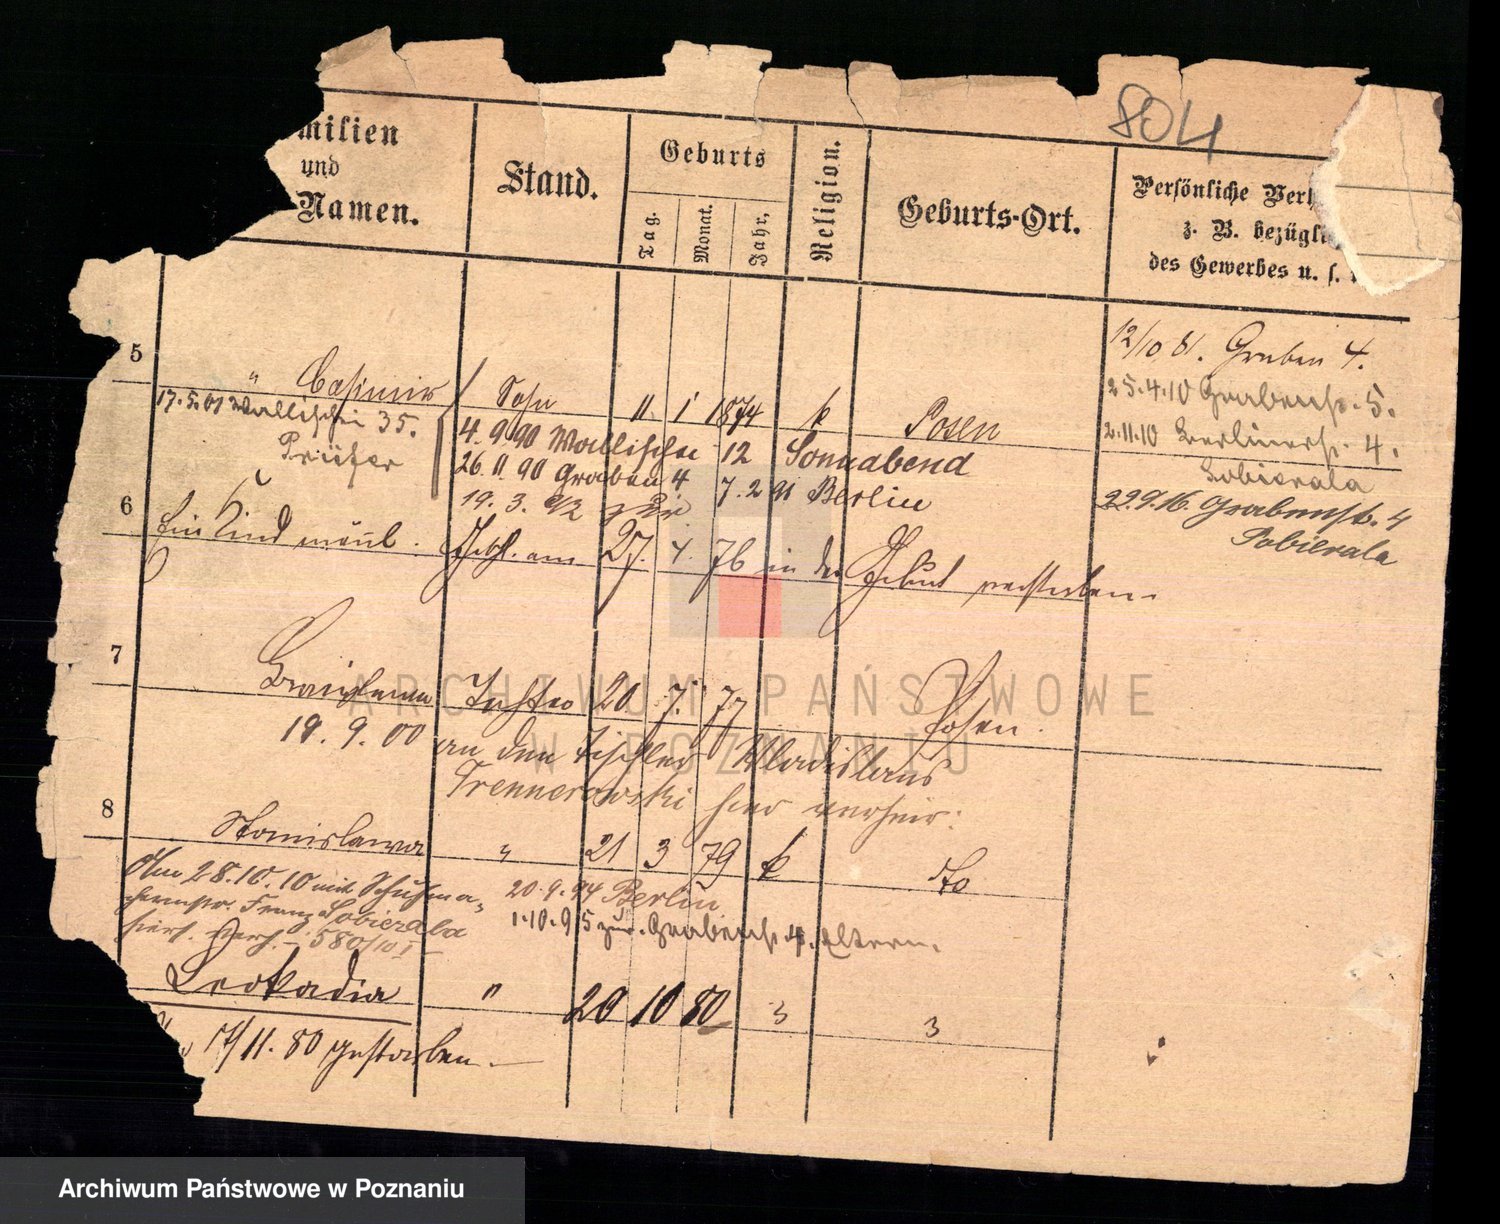 804
milien
und
Namen.
Stand.
Geburts
Tag.
Monat.
Jahr,
Religion.
Geburts-Ort.
Persönliche Verh
z. B. bezügli
des Gewerbes u. s.
12/10 81. Graben 4.
5
" Casimir Sohn 11. 1 1874 k Posen
25.4.10 Grabenstr. 5.
17.5.01 Wallischei 35.
Prüfer
4. 9. 90 Wallischei 12 Sonnabend
2.11.10 Berlinerstr. 4.
Sobierala
26. 11. 90 Graben 4 7. 2 91 Berlin
19. 3. 92 z Dir
22.9.16. Grabenstr. 4
Sobierala
6
Ein Kind männl. Gebh. am 27. 4. 76 in der Geburt verstorben.
7
Tochter 20 7. 77 Posen.
19. 9. 00 an den Tischler Wladislaus
Trennerowski hier verheir:
8
Stanislawa " 21 3 79 k do
Am 28.10.10 mit Schuhma-
chermstr. Franz Sobierala
hiers. verh. – 580/10 I –
20. 9. 94 Berlin
1.10.95 zur. Grabenstr. 4. Eltern.
Leokadia " 20 10 80 3 3
17/11. 80 gestorben. –
ARCHIWUM PAŃSTWOWE
W POZNANIU
Archiwum Państwowe w Poznaniu